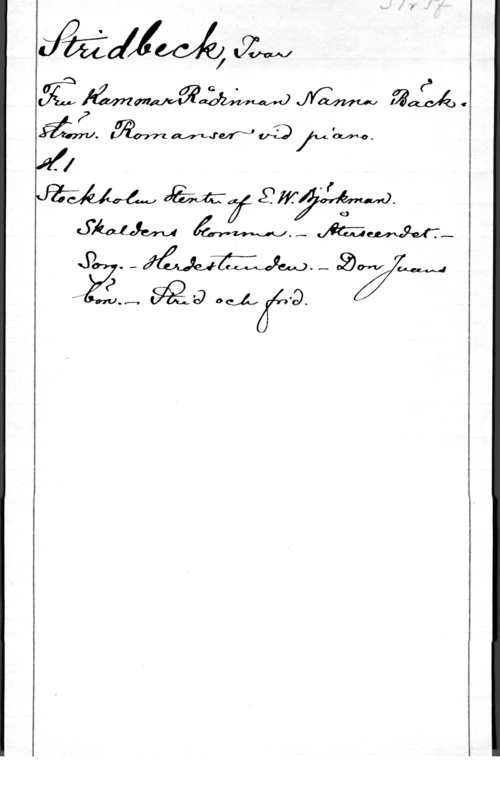 Stridbeck, Ivar
Fru KammarRådinnan Nanna Bäck-
ström. Romanser vid piano.
H.1
Stockholm Stentr. af E. W. Björkman.
Skaldens blomma. - Återseendet. -
Sorg. - Herdestunden. - Don Juans
bön. - Strid och frid.